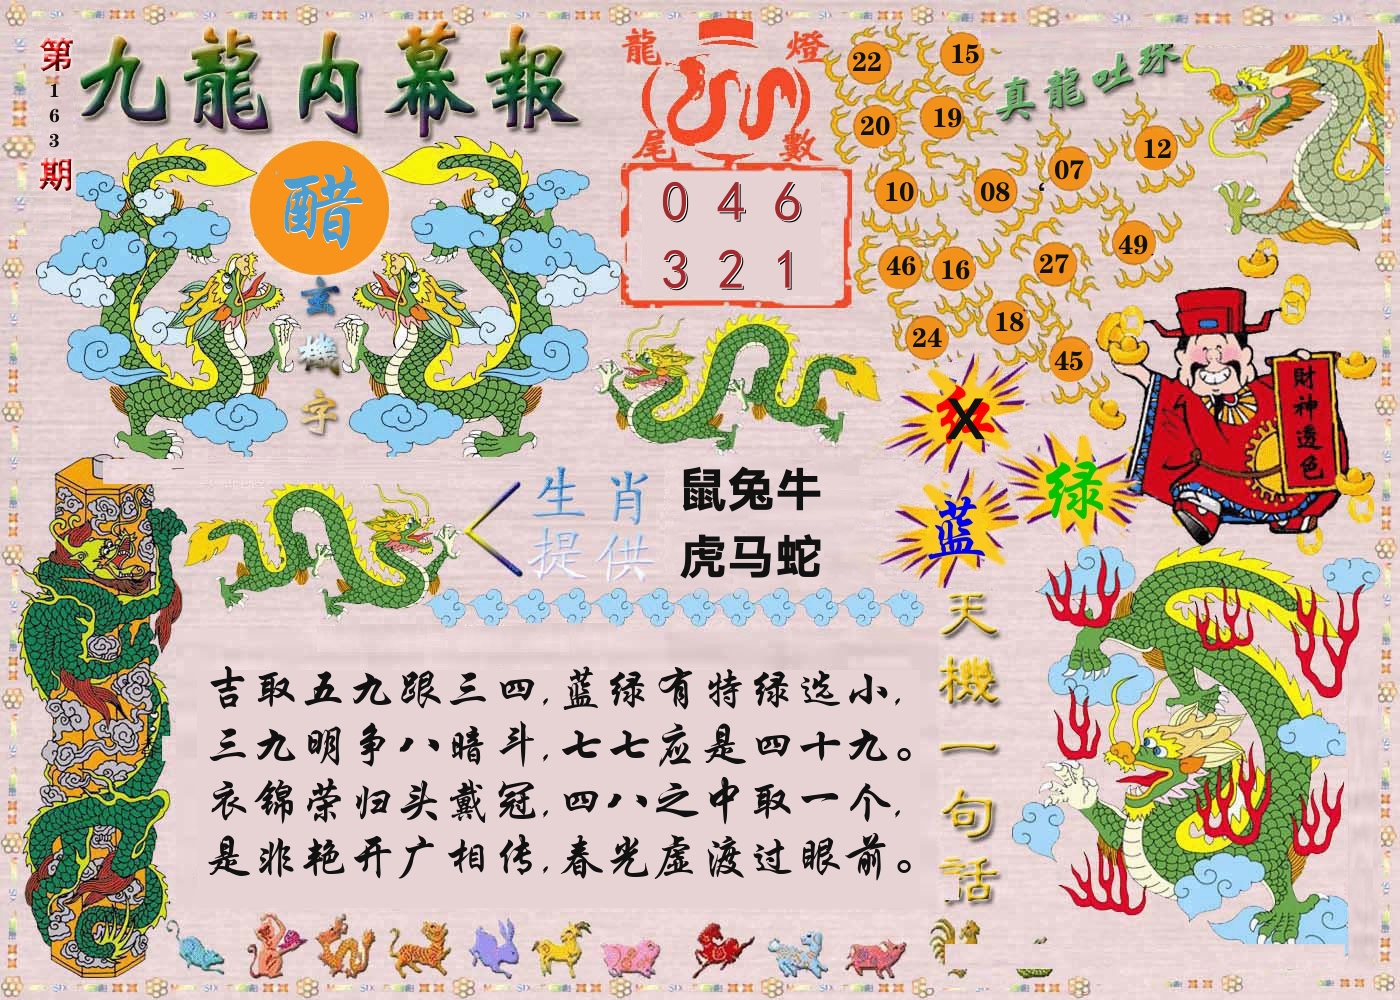 第163期
九龍内幕報
醋
玄機字
龍燈
尾數
0 4 6
3 2 1
真龍吐珠
22
15
20
19
12
07
10
08
49
46
16
27
24
18
45
財神透色
红
X
绿
蓝
生肖
提供
鼠兔牛
虎马蛇
天機一句話
吉取五九跟三四,蓝绿有特绿选小,
三九明争八暗斗,七七应是四十九。
衣锦荣归头戴冠,四八之中取一个,
是非艳开广相传,春光虚渡过眼前。